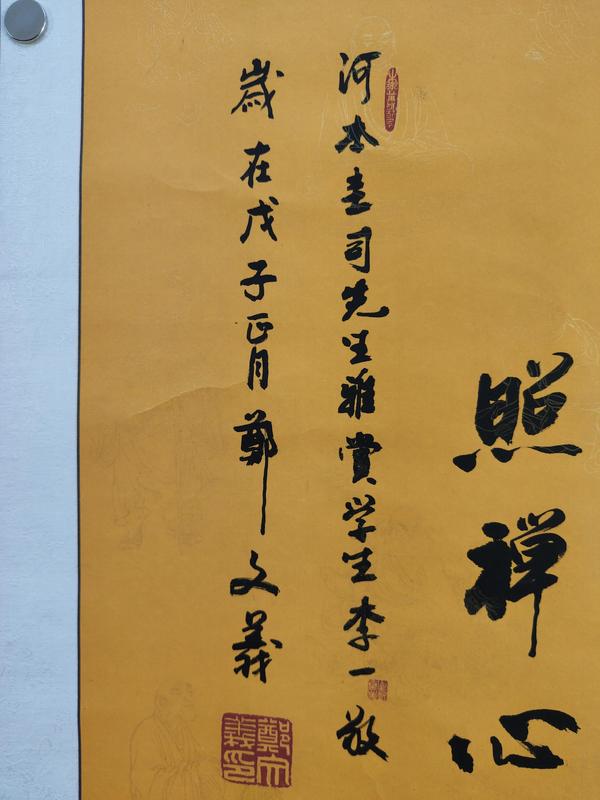 照禅心
河本圭司先生雅賞学生李一敬
歲在戊子正月鄭文義
鄭文義印